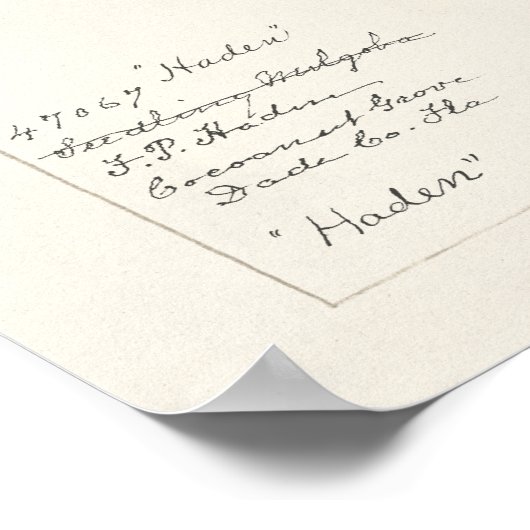 47067 "Haden"
Seedling Mulgoba
F.P. Haden
Cocoanut Grove
Dade Co. Fla
"Haden"